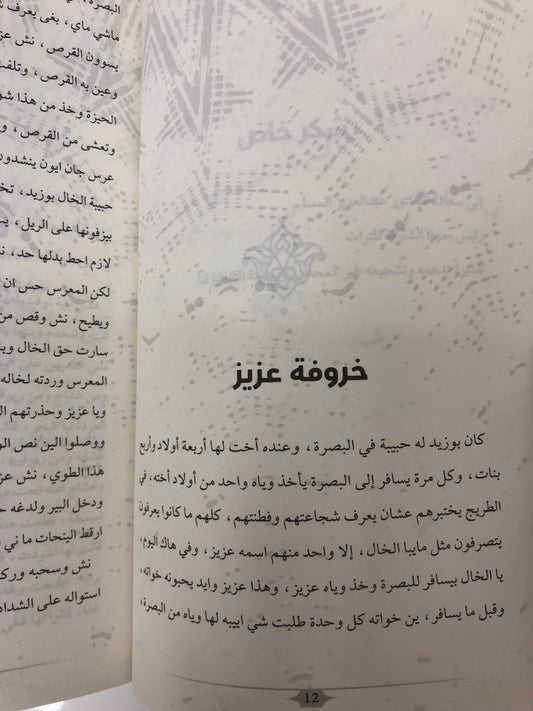 شكر خاص
خروفة عزيز
كان بوزيد له حبيبة في البصرة، وعنده أخت لها أربعة أولاد وأربع
بنات، وكل مرة يسافر إلى البصرة يأخذ وياه واحد من أولاد أخته، في
الطريج يختبرهم عشان يعرف شجاعتهم وفطنتهم، كلهم ما كانوا يعرفون
يتصرفون مثل مايبا الخال، إلا واحد منهم اسمه عزيز، وفي هاك اليوم،
يا الخال بيسافر للبصرة وخذ وياه عزيز، وهذا عزيز وايد يحبونه خواته،
وقبل ما يسافر، ين خواته كل وحدة طلبت شي اييبه لها وياه من البصرة،
12
البصرة،
ماشي ماي، بغى يعرف
يسوون القرص، نش
وعين به القرص، وتلفت
الحيزة وخذ من هذا
وتعشى من القرص،
عرس جان ايون ينشدون
حبيبة الخال بوزيد،
بيزفونها على الريل،
لازم احط بدلها حد،
لكن المعرس حس ان
ويطيح، نش وقص من
سارت حق الخال
المعرس وردته لخاله
ويا عزيز وحذرتهم
ووصلوا الين نص
هذا الطوي، نش
ودخل البير ولدغه
ارقط البنحات ما ني
نش وسحبه
استواله على الشداد